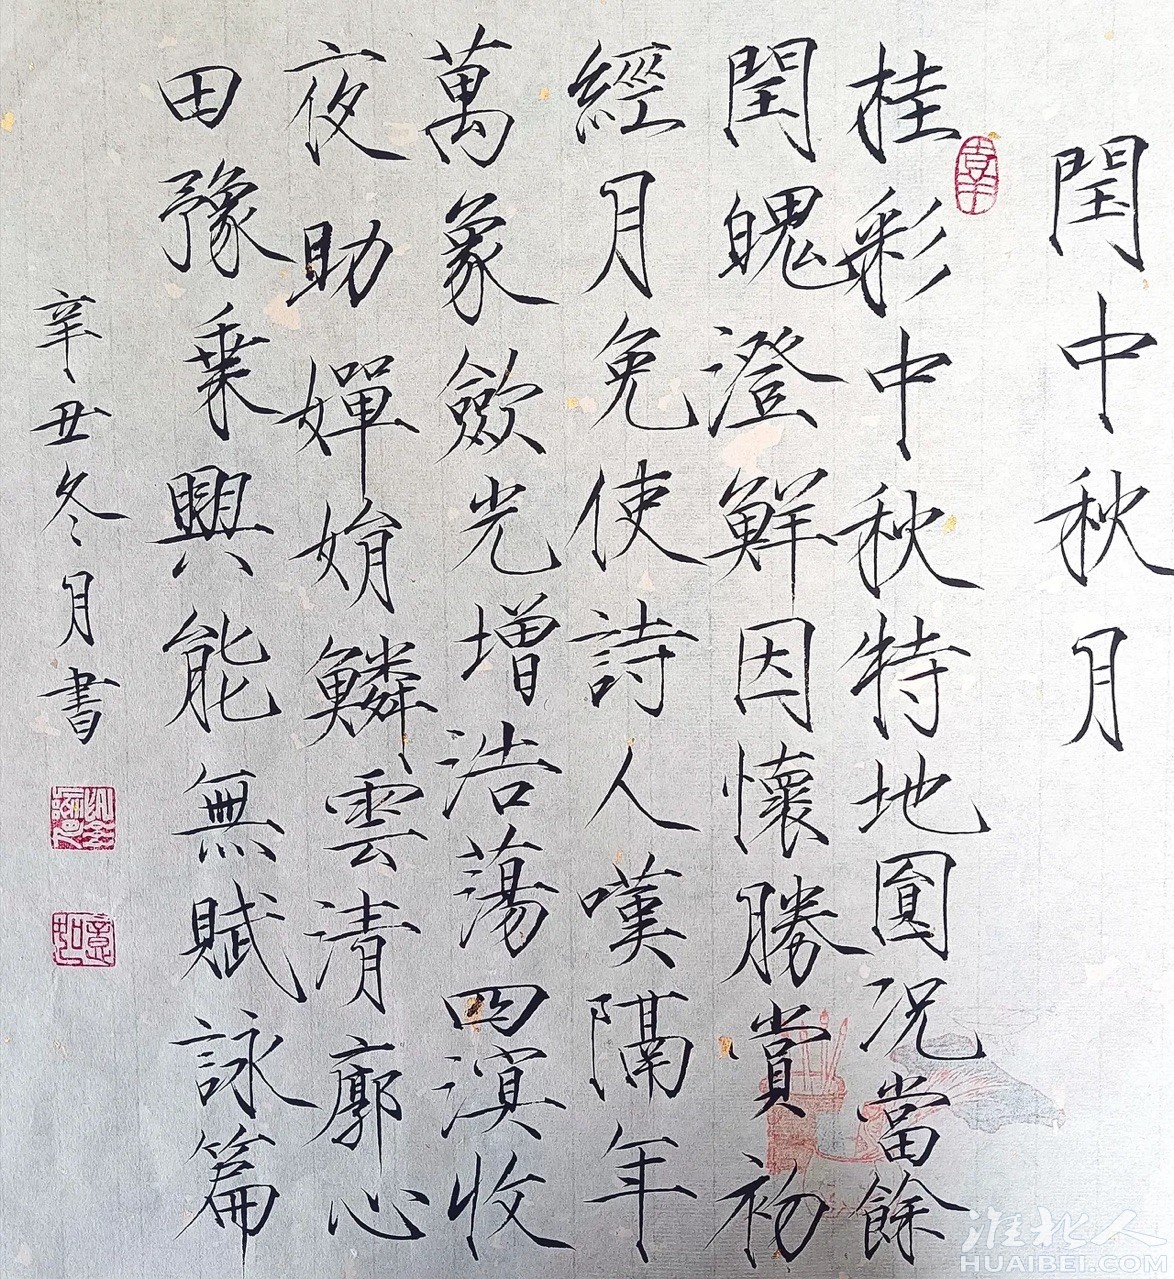 閏中秋月
辛丑
桂彩中秋特地圓況當餘
閏魄澄鮮因懷勝賞初
經月免使詩人嘆隔年
萬象歛光增浩蕩四溟收
夜助嬋娟鱗雲清廓心
田豫乗興能無賦詠篇
辛丑冬月書
如意
淮北人
HUAIBEI.COM